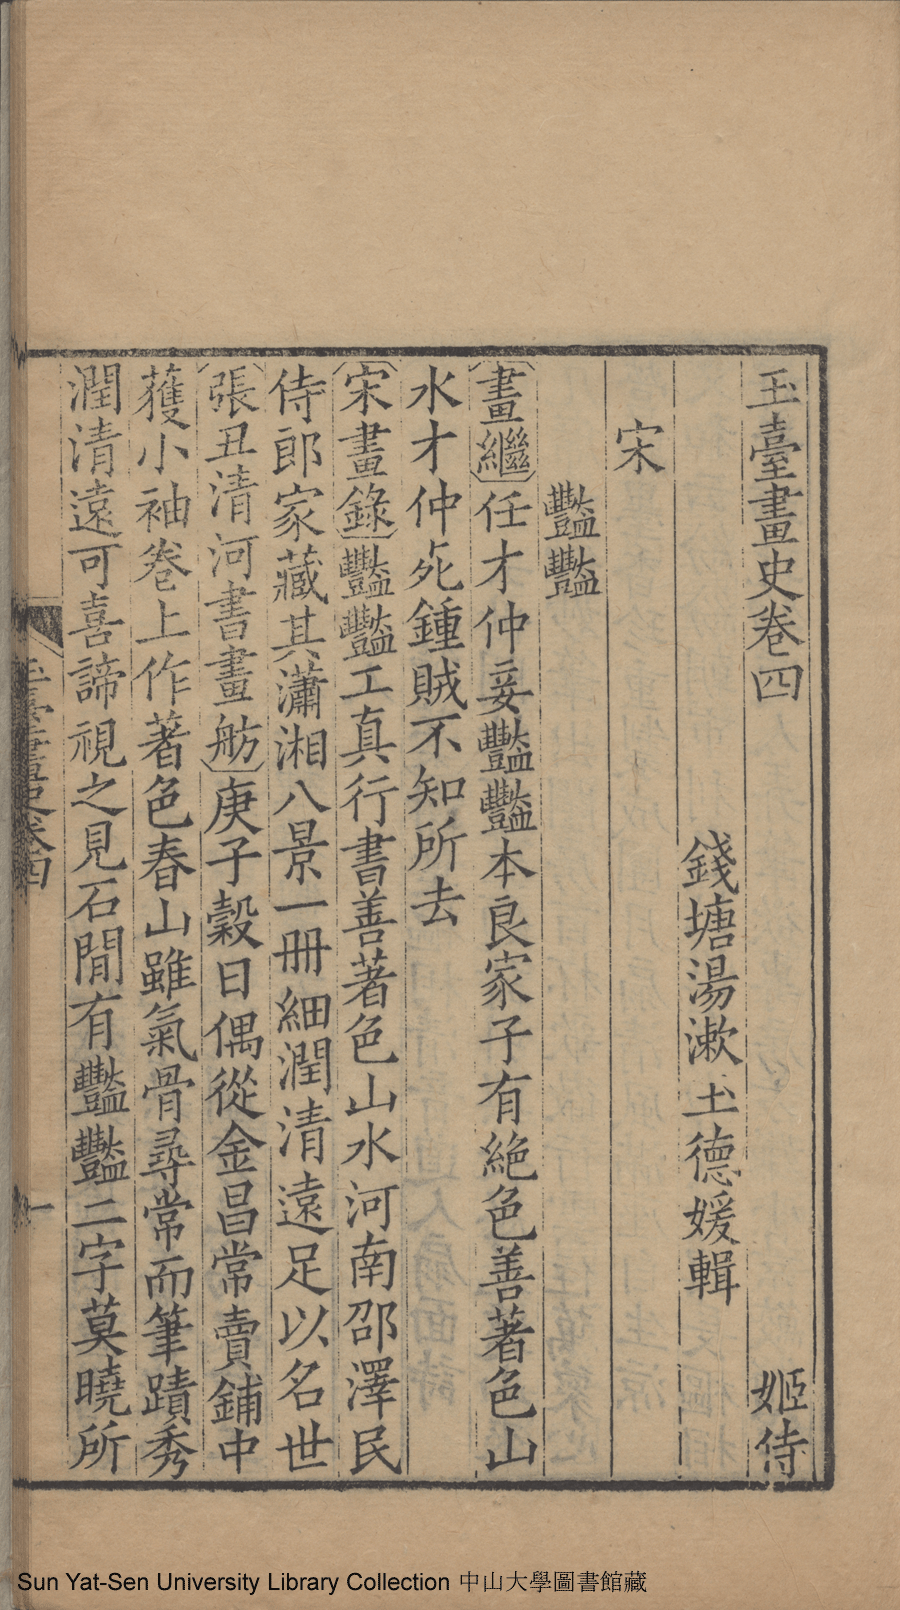 玉臺畫史卷四 姬侍
錢塘湯漱玉德媛輯
宋
豔豔
畫繼任才仲妾豔豔本良家子有絶色善著色山
水才仲死鍾賊不知所去
宋畫錄豔豔工真行書善著色山水河南邵澤民
侍郎家藏其瀟湘八景一冊細潤清遠足以名世
張丑清河書畫舫庚子穀日偶從金昌常賣鋪中
獲小袖卷上作著色春山雖氣骨尋常而筆蹟秀
潤清遠可喜諦視之見石間有豔豔二字莫曉所
玉臺畫史卷四 一
Sun Yat-Sen University Library Collection 中山大學圖書館藏